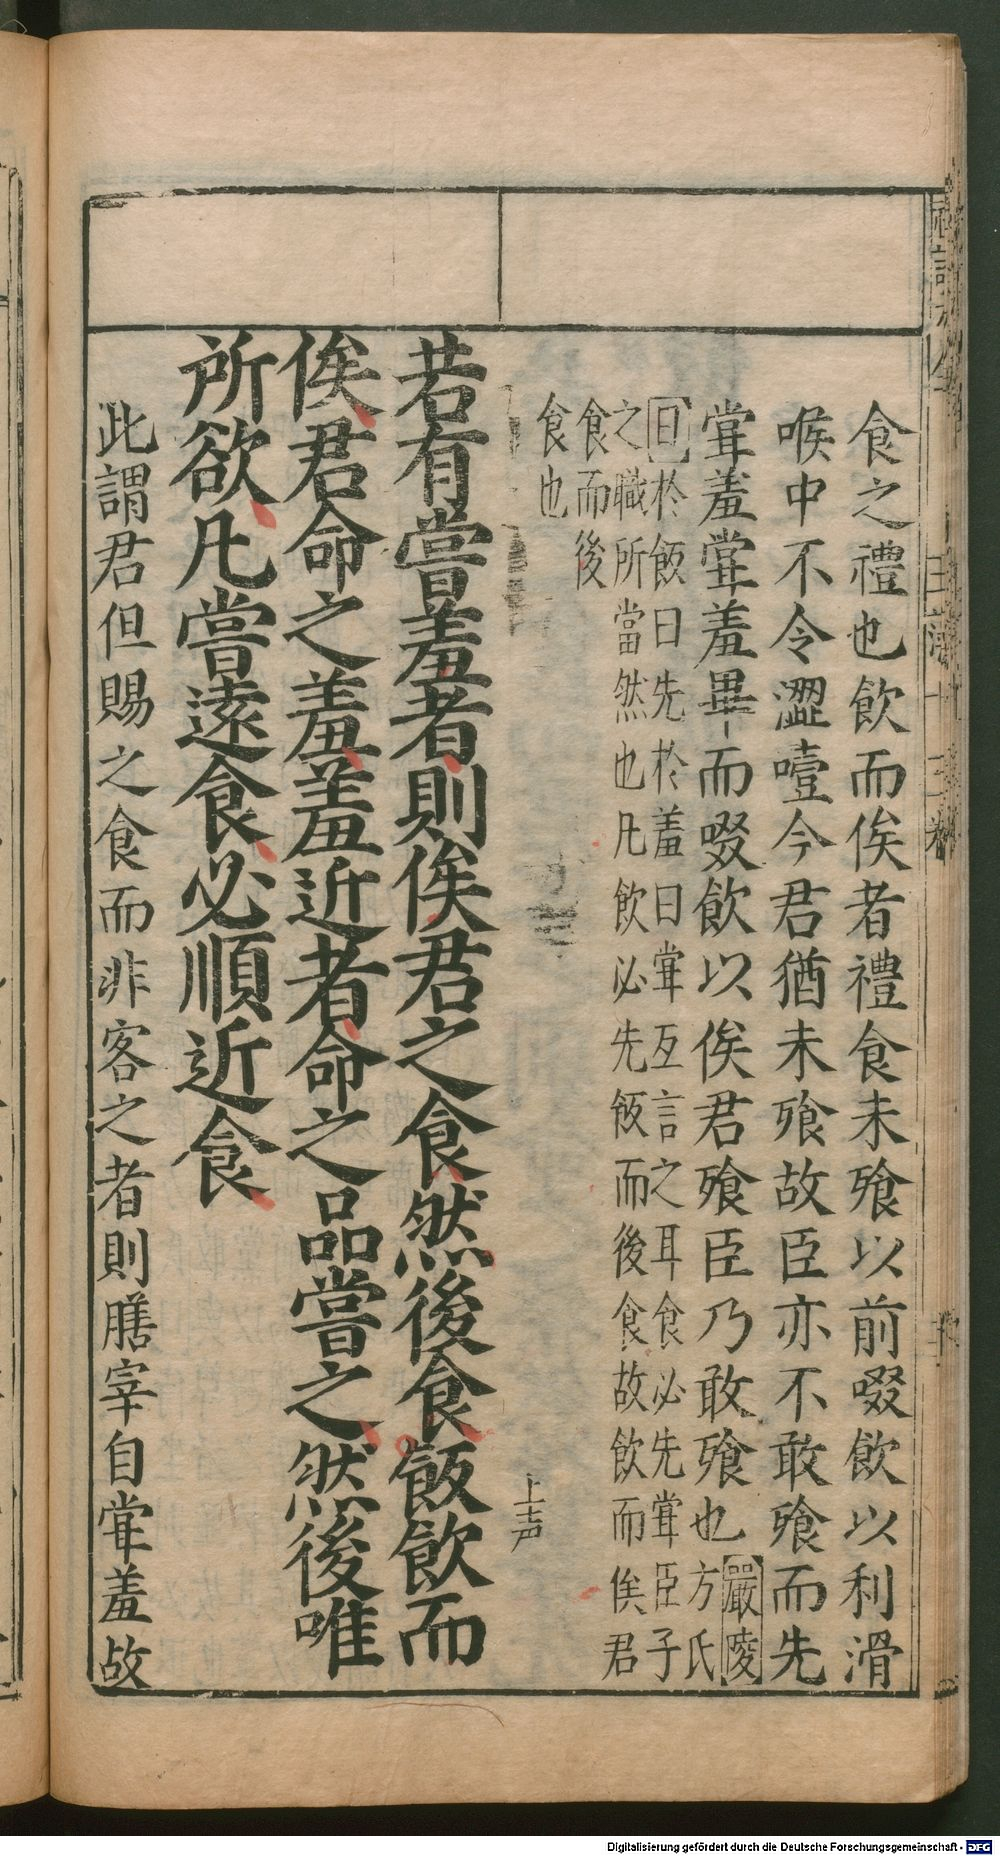 食之禮也飲而俟者禮食未飱以前啜飲以利滑
喉中不令澀噎今君猶未飱故臣亦不敢飱而先
甞羞甞羞畢而啜飲以俟君飱臣乃敢飱也嚴陵方氏
曰於飯曰先於羞曰甞互言之耳食必先甞臣子
之職所當然也凡飲必先飯而後食故飲而俟君
食而後
食也
上声
若有嘗羞者則俟君之食然後食飯飲而
俟君命之羞羞近者命之品嘗之然後唯
所欲凡嘗遠食必順近食
此謂君但賜之食而非客之者則膳宰自甞羞故
Digitalisierung gefördert durch die Deutsche Forschungsgemeinschaft - DFG